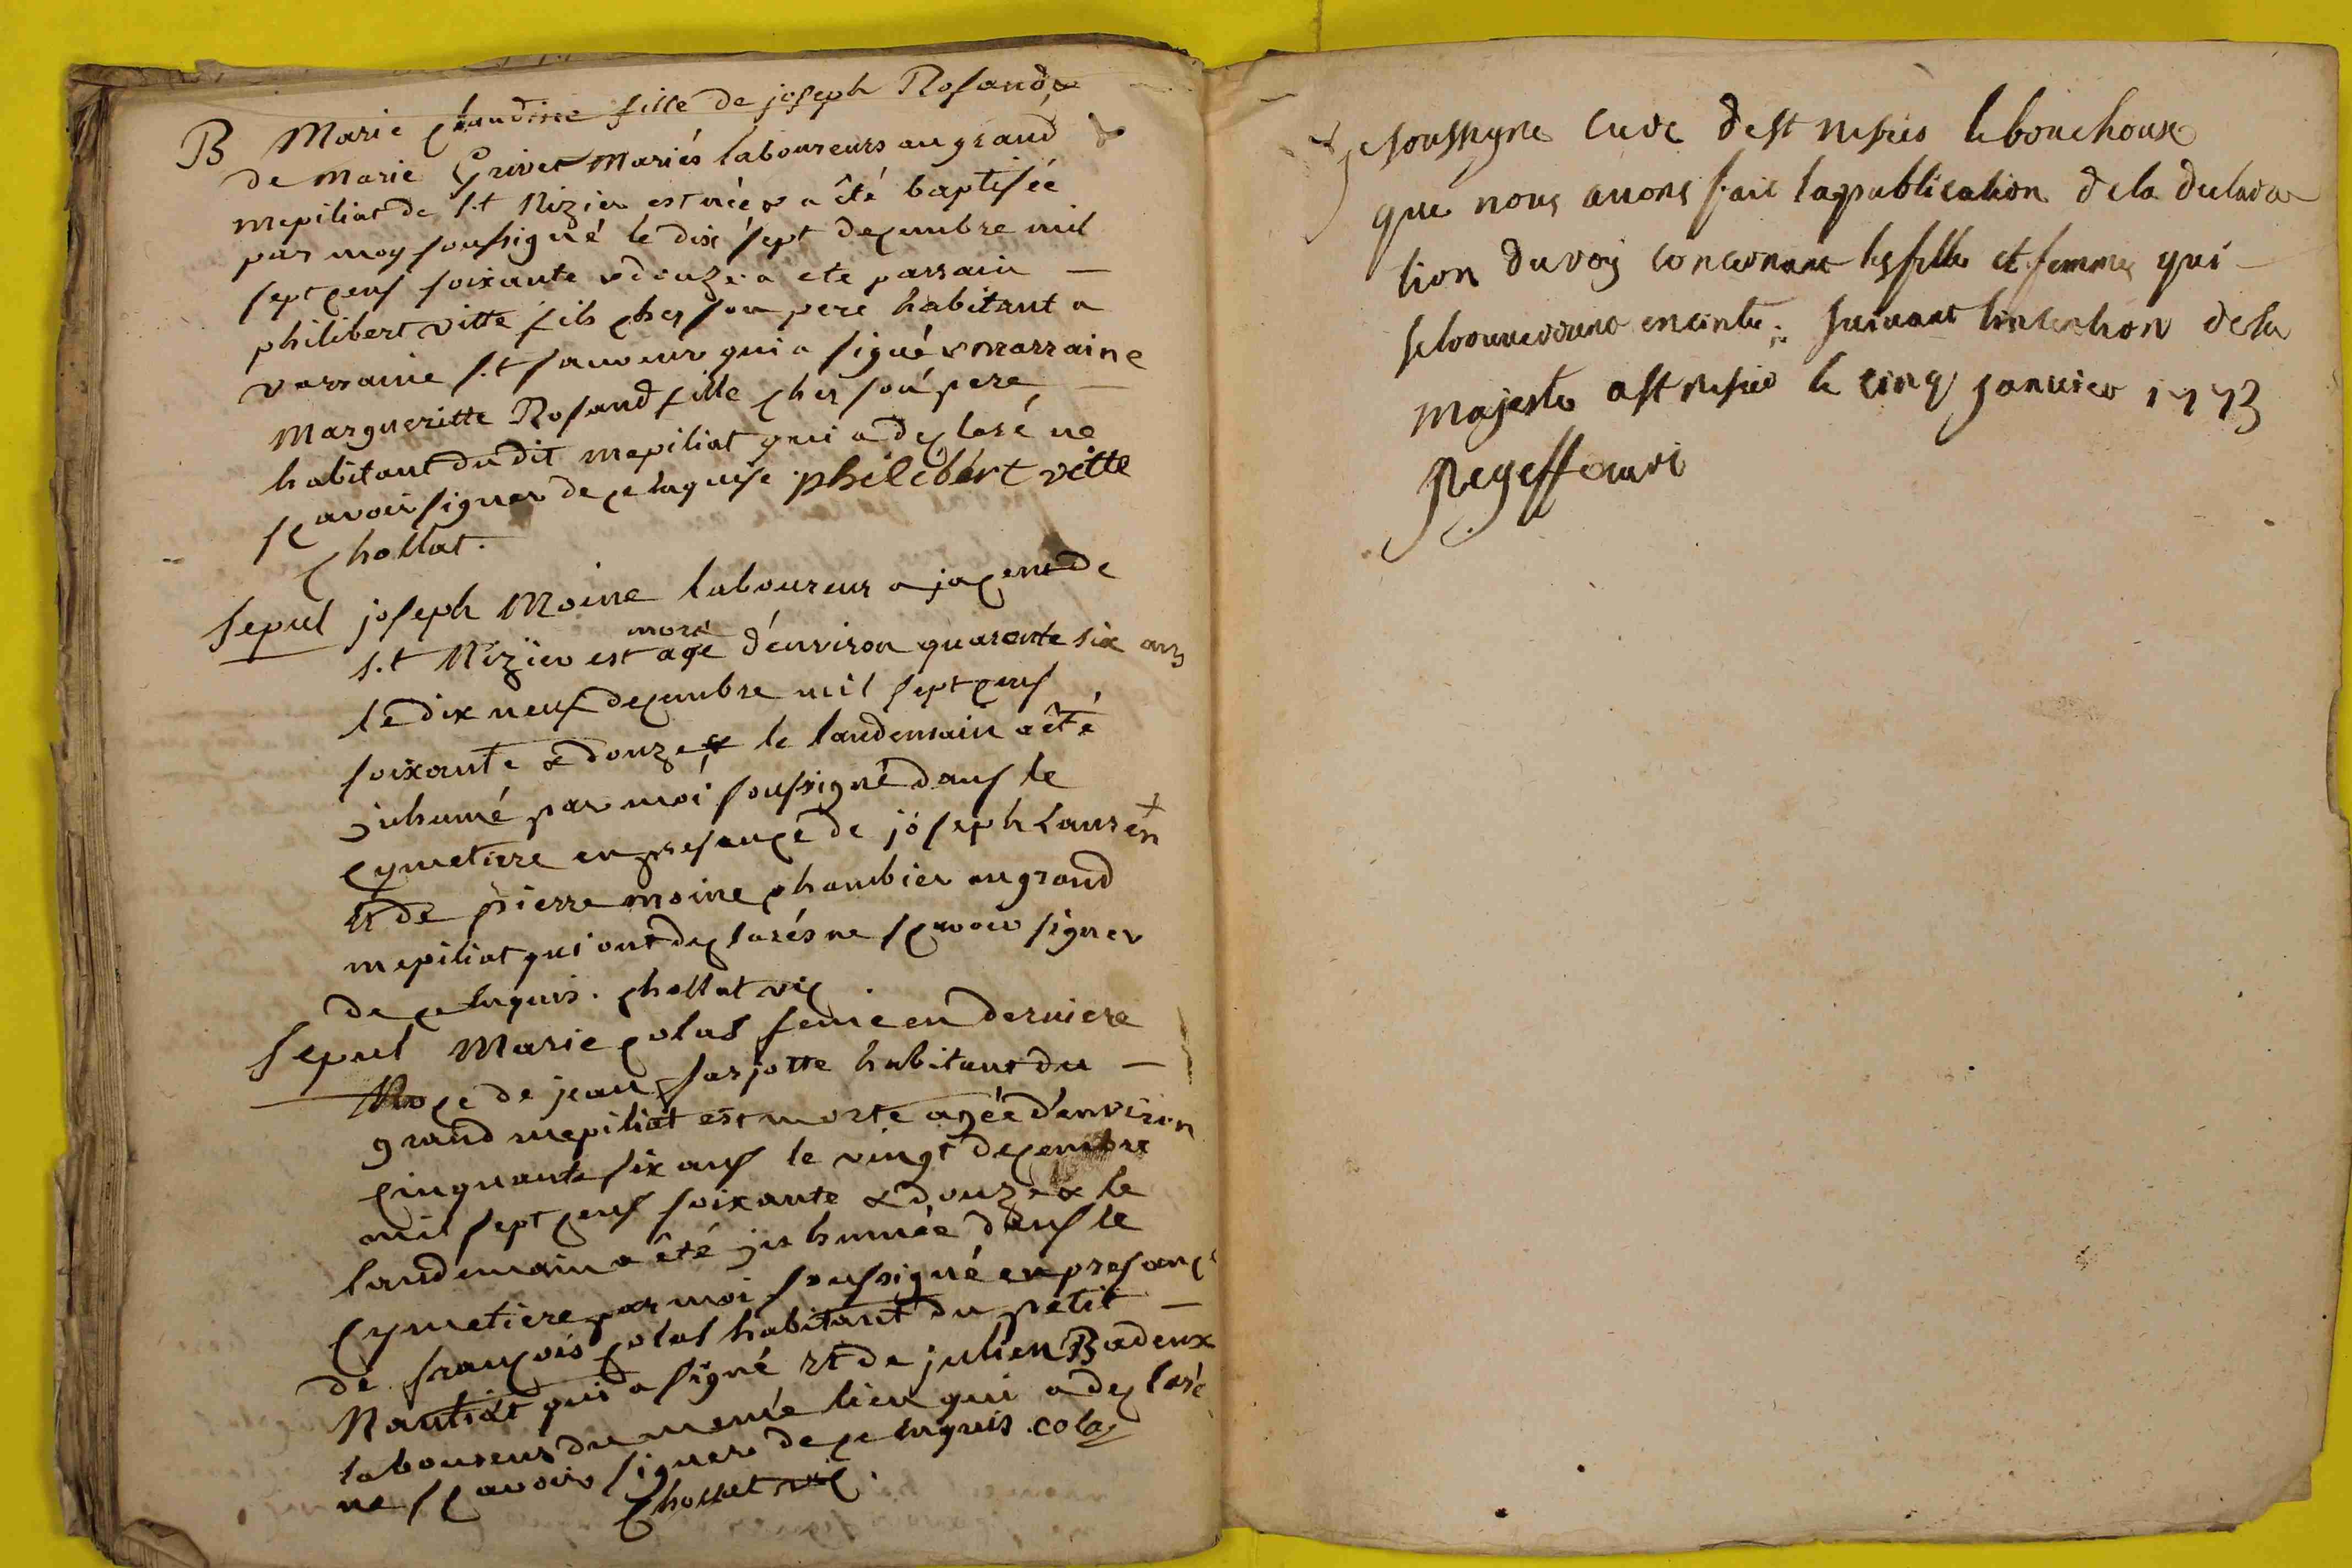 B Marie Claudine fille de joseph Rosand &
de marie Grivet mariés laboureurs au grand
mepiliat de s.t Nizier est née & a êté baptisée
par moy soussigné le dix sept decembre mil
sept cens soixante & douze a ete parrain —
philibert vitte fils ches son pere habitant a
varraine s.t sauveur qui a signé & marraine
Margueritte Rosand fille ches son pere, —
habitant du dit mepiliat qui a declaré ne
scavoir signer de ce enquise philibert vitte
chollat.
sepul joseph Moine laboureur a jacem de
mort
s.t Nizier est agé d'environ quarente six ans
le dix neuf decembre mil sept cens
soixante & douze & le landemain a êté
inhumé par moi soussigné dans le
cymetiere en presence de joseph Lauren
& de pierre moine chambier au grand
mepiliat qui ont declarés ne scavoir signer
de ce enquis. chollat vic
sepul Marie colas feme en derniere
Noce de jean farjotte habitant du —
grand mepiliat est morte agée d'environ
cinquante six ans le vingt decembre
mil sept cens soixante & douze & le
landemain a êté inhumée dans le
cymetiere par moi soussigné en presance
de françois colas habitant du petit —
Nantiat qui a signé et de julien Badoux
laboureur du meme lieu qui a declaré
ne scavoir signer de ce enquis. cola
chollat vic.
je soussigne cure de st nisies le bouchoux
que nous auons fait la publication de la declara
tion du roy concernant les filles et femmes qui —
se trouueront enceinte; suivant lintention de sa
majeste a st nisies le cinq januier 1773